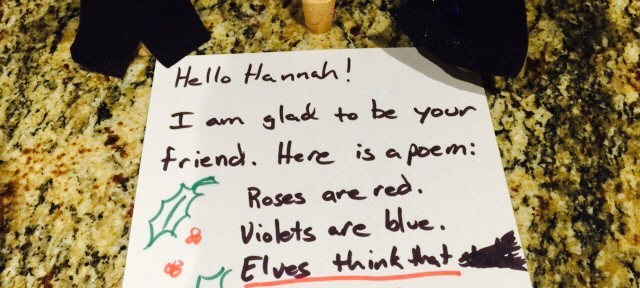 Hello Hannah!
I am glad to be your
friend. Here is a poem:
Roses are red.
Violets are blue.
Elves think that